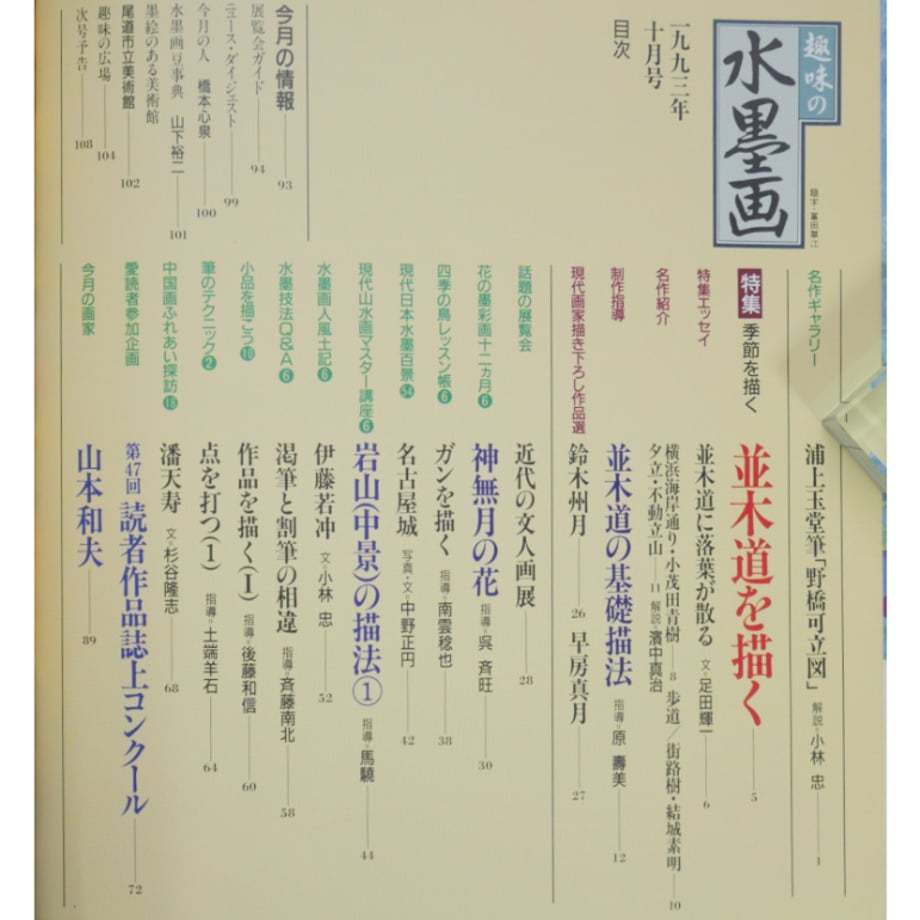 趣味の
水墨画
題字・富田翠江
一九九三年
十月号
目次
今月の情報 93
展覧会ガイド 94
ニュース・ダイジェスト 99
今月の人 橋本心泉 100
水墨画豆事典 山下裕二 101
墨絵のある美術館
尾道市立美術館 102
趣味の広場 104
次号予告 108
名作ギャラリー 浦上玉堂筆「野橋可立図」 解説=小林 忠 1
特集 季節を描く 並木道を描く 5
特集エッセイ 並木道に落葉が散る 文=足田輝一 6
名作紹介 横浜海岸通り・小茂田青樹 8 歩道/街路樹・結城素明 10
夕立・不動立山 11 解説=濱中真治
制作指導 並木道の基礎描法 指導=原 壽美 12
現代画家描き下ろし作品選 鈴木州月 26 早房真月 27
話題の展覧会 近代の文人画展 28
花の墨彩画十二カ月6 神無月の花 指導=呉 斉旺 30
四季の鳥レッスン帳6 ガンを描く 指導=南雲稔也 38
現代日本水墨百景54 名古屋城 写真・文=中野正円 42
現代山水画マスター講座6 岩山(中景)の描法① 指導=馬驍 44
水墨画人風土記6 伊藤若冲 文=小林 忠 52
水墨技法Q&A6 渇筆と割筆の相違 指導=斉藤南北 58
小品を描こう10 作品を描く(I) 指導=後藤和信 60
筆のテクニック2 点を打つ(1) 指導=土端羊石 64
中国画ふれあい探訪18 潘天寿 文=杉谷隆志 68
愛読者参加企画 第47回 読者作品誌上コンクール 72
今月の画家 山本和夫 89